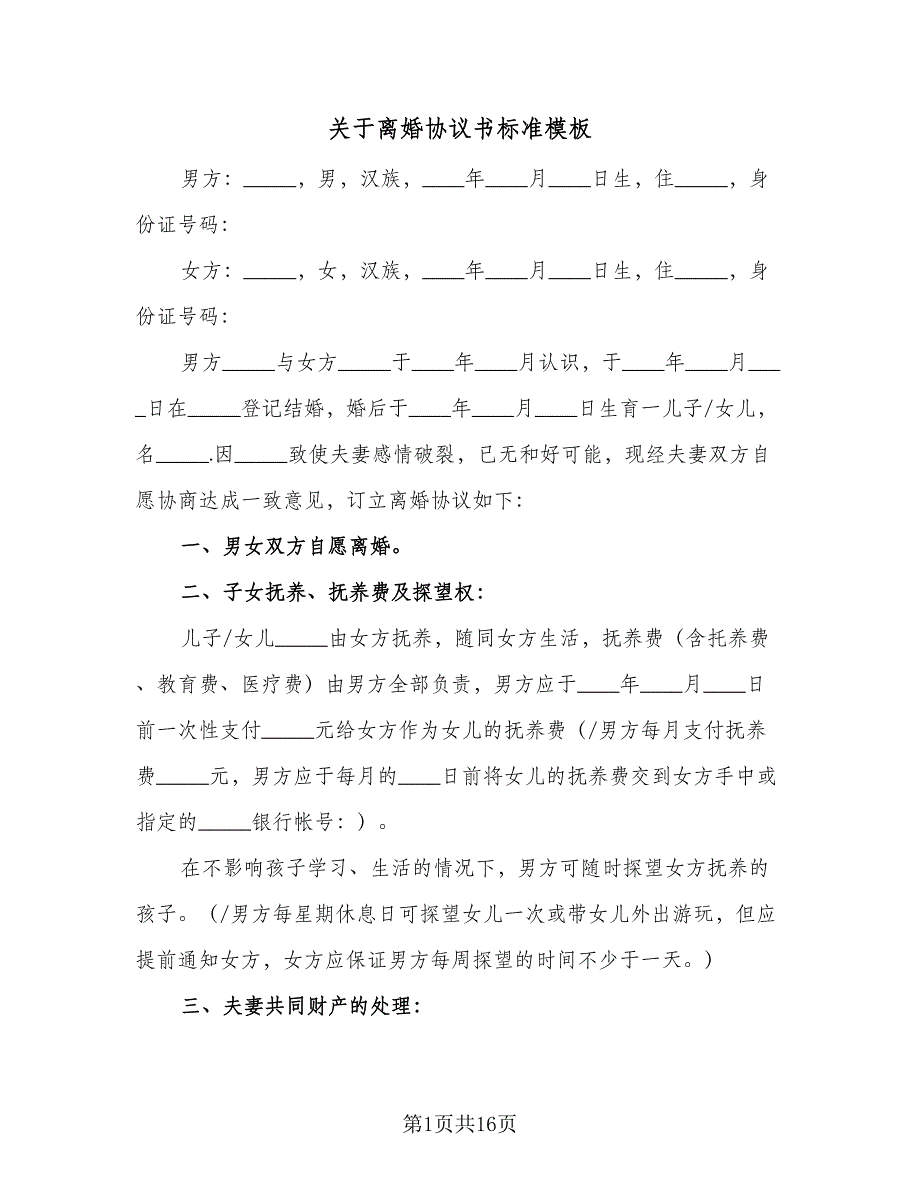 关于离婚协议书标准模板
男方：_____，男，汉族，____年____月____日生，住_____，身
份证号码：
女方：_____，女，汉族，____年____月____日生，住_____，身
份证号码：
男方_____与女方_____于____年____月认识，于____年____月___
_日在_____登记结婚，婚后于____年____月____日生育一儿子/女儿，
名_____.因_____致使夫妻感情破裂，已无和好可能，现经夫妻双方自
愿协商达成一致意见，订立离婚协议如下：
一、男女双方自愿离婚。
二、子女抚养、抚养费及探望权：
儿子/女儿_____由女方抚养，随同女方生活，抚养费（含托养费
、教育费、医疗费）由男方全部负责，男方应于____年____月____日
前一次性支付_____元给女方作为女儿的抚养费（/男方每月支付抚养
费_____元，男方应于每月的____日前将女儿的抚养费交到女方手中或
指定的_____银行帐号：）。
在不影响孩子学习、生活的情况下，男方可随时探望女方抚养的
孩子。（/男方每星期休息日可探望女儿一次或带女儿外出游玩，但应
提前通知女方，女方应保证男方每周探望的时间不少于一天。）
三、夫妻共同财产的处理：
第1页共16页